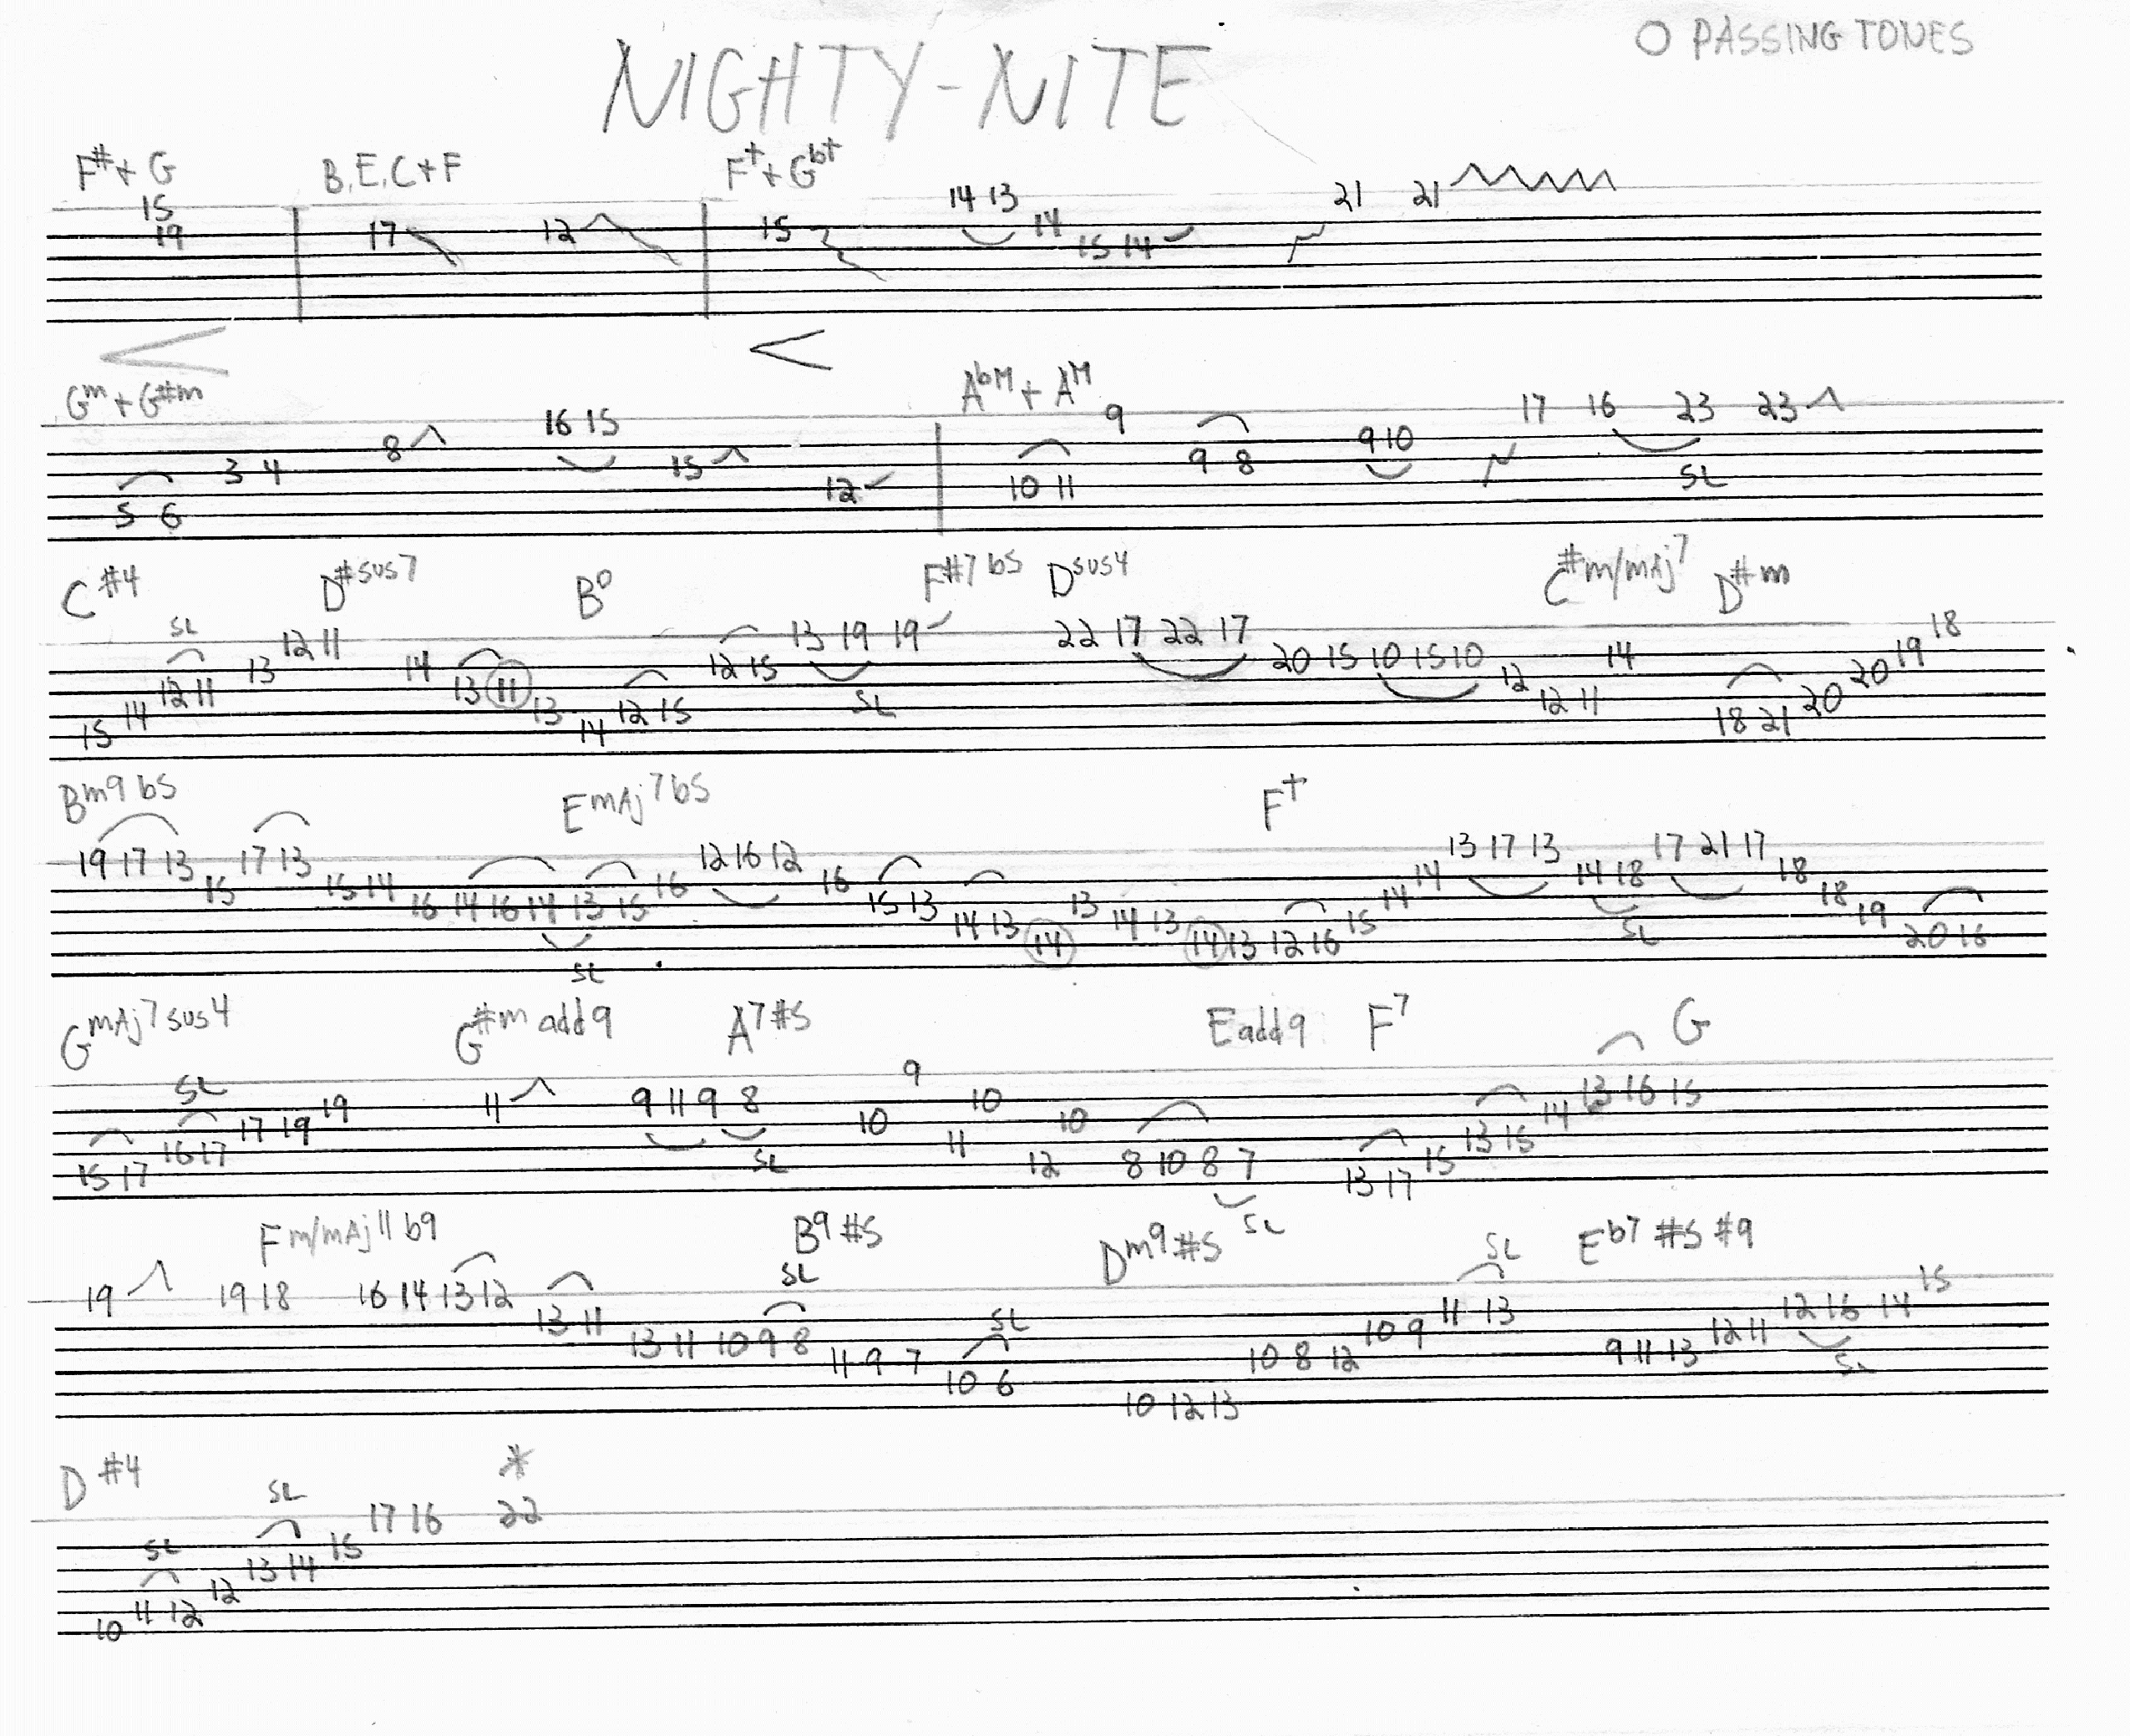 O PASSING TONES
NIGHTY-NITE
F#+ G B,E,C+F F+ + Gb+
15 14 13 21 21
19 17 12 15 14 15 14
Gm + G#m AbM + AM
16 15 9 17 16 23 23
8 9 10
3 4 15 9 8 SL
5 6 12 10 11
C#4 D#sus7 Bo F#7b5 Dsus4 C#m/mAj7 D#m
SL 12 11 13 19 19 22 17 22 17 18
15 14 12 11 13 14 13 11 13 14 12 15 12 15 SL 20 15 10 15 10 12 12 11 14 18 21 20 20 19
Bm9b5 EmAj7b5 F+
19 17 13 15 17 13 15 14 16 14 16 14 13 15 16 12 16 12 16 15 13 14 13 14 13 14 13 14 13 12 16 15 14 14 13 17 13 14 18 17 21 17 18 18 19 20 16
SL SL
GmAj7sus4 G#m add9 A7#5 Eadd9 F7 G
SL
15 17 16 17 17 19 19 11 9 11 9 8 10 9 11 10 12 10 8 10 8 7 13 17 15 13 15 14 13 16 15
SL SL
Fm/mAj11b9 B9#5 Dm9#5 Eb7#5#9
SL SL SL
19 19 18 16 14 13 12 13 11 13 11 10 9 8 11 9 7 10 6 10 12 13 10 8 12 10 9 11 13 9 11 13 12 11 12 16 14 15
SL
D#4 *
SL SL
10 11 12 12 13 14 15 17 16 22